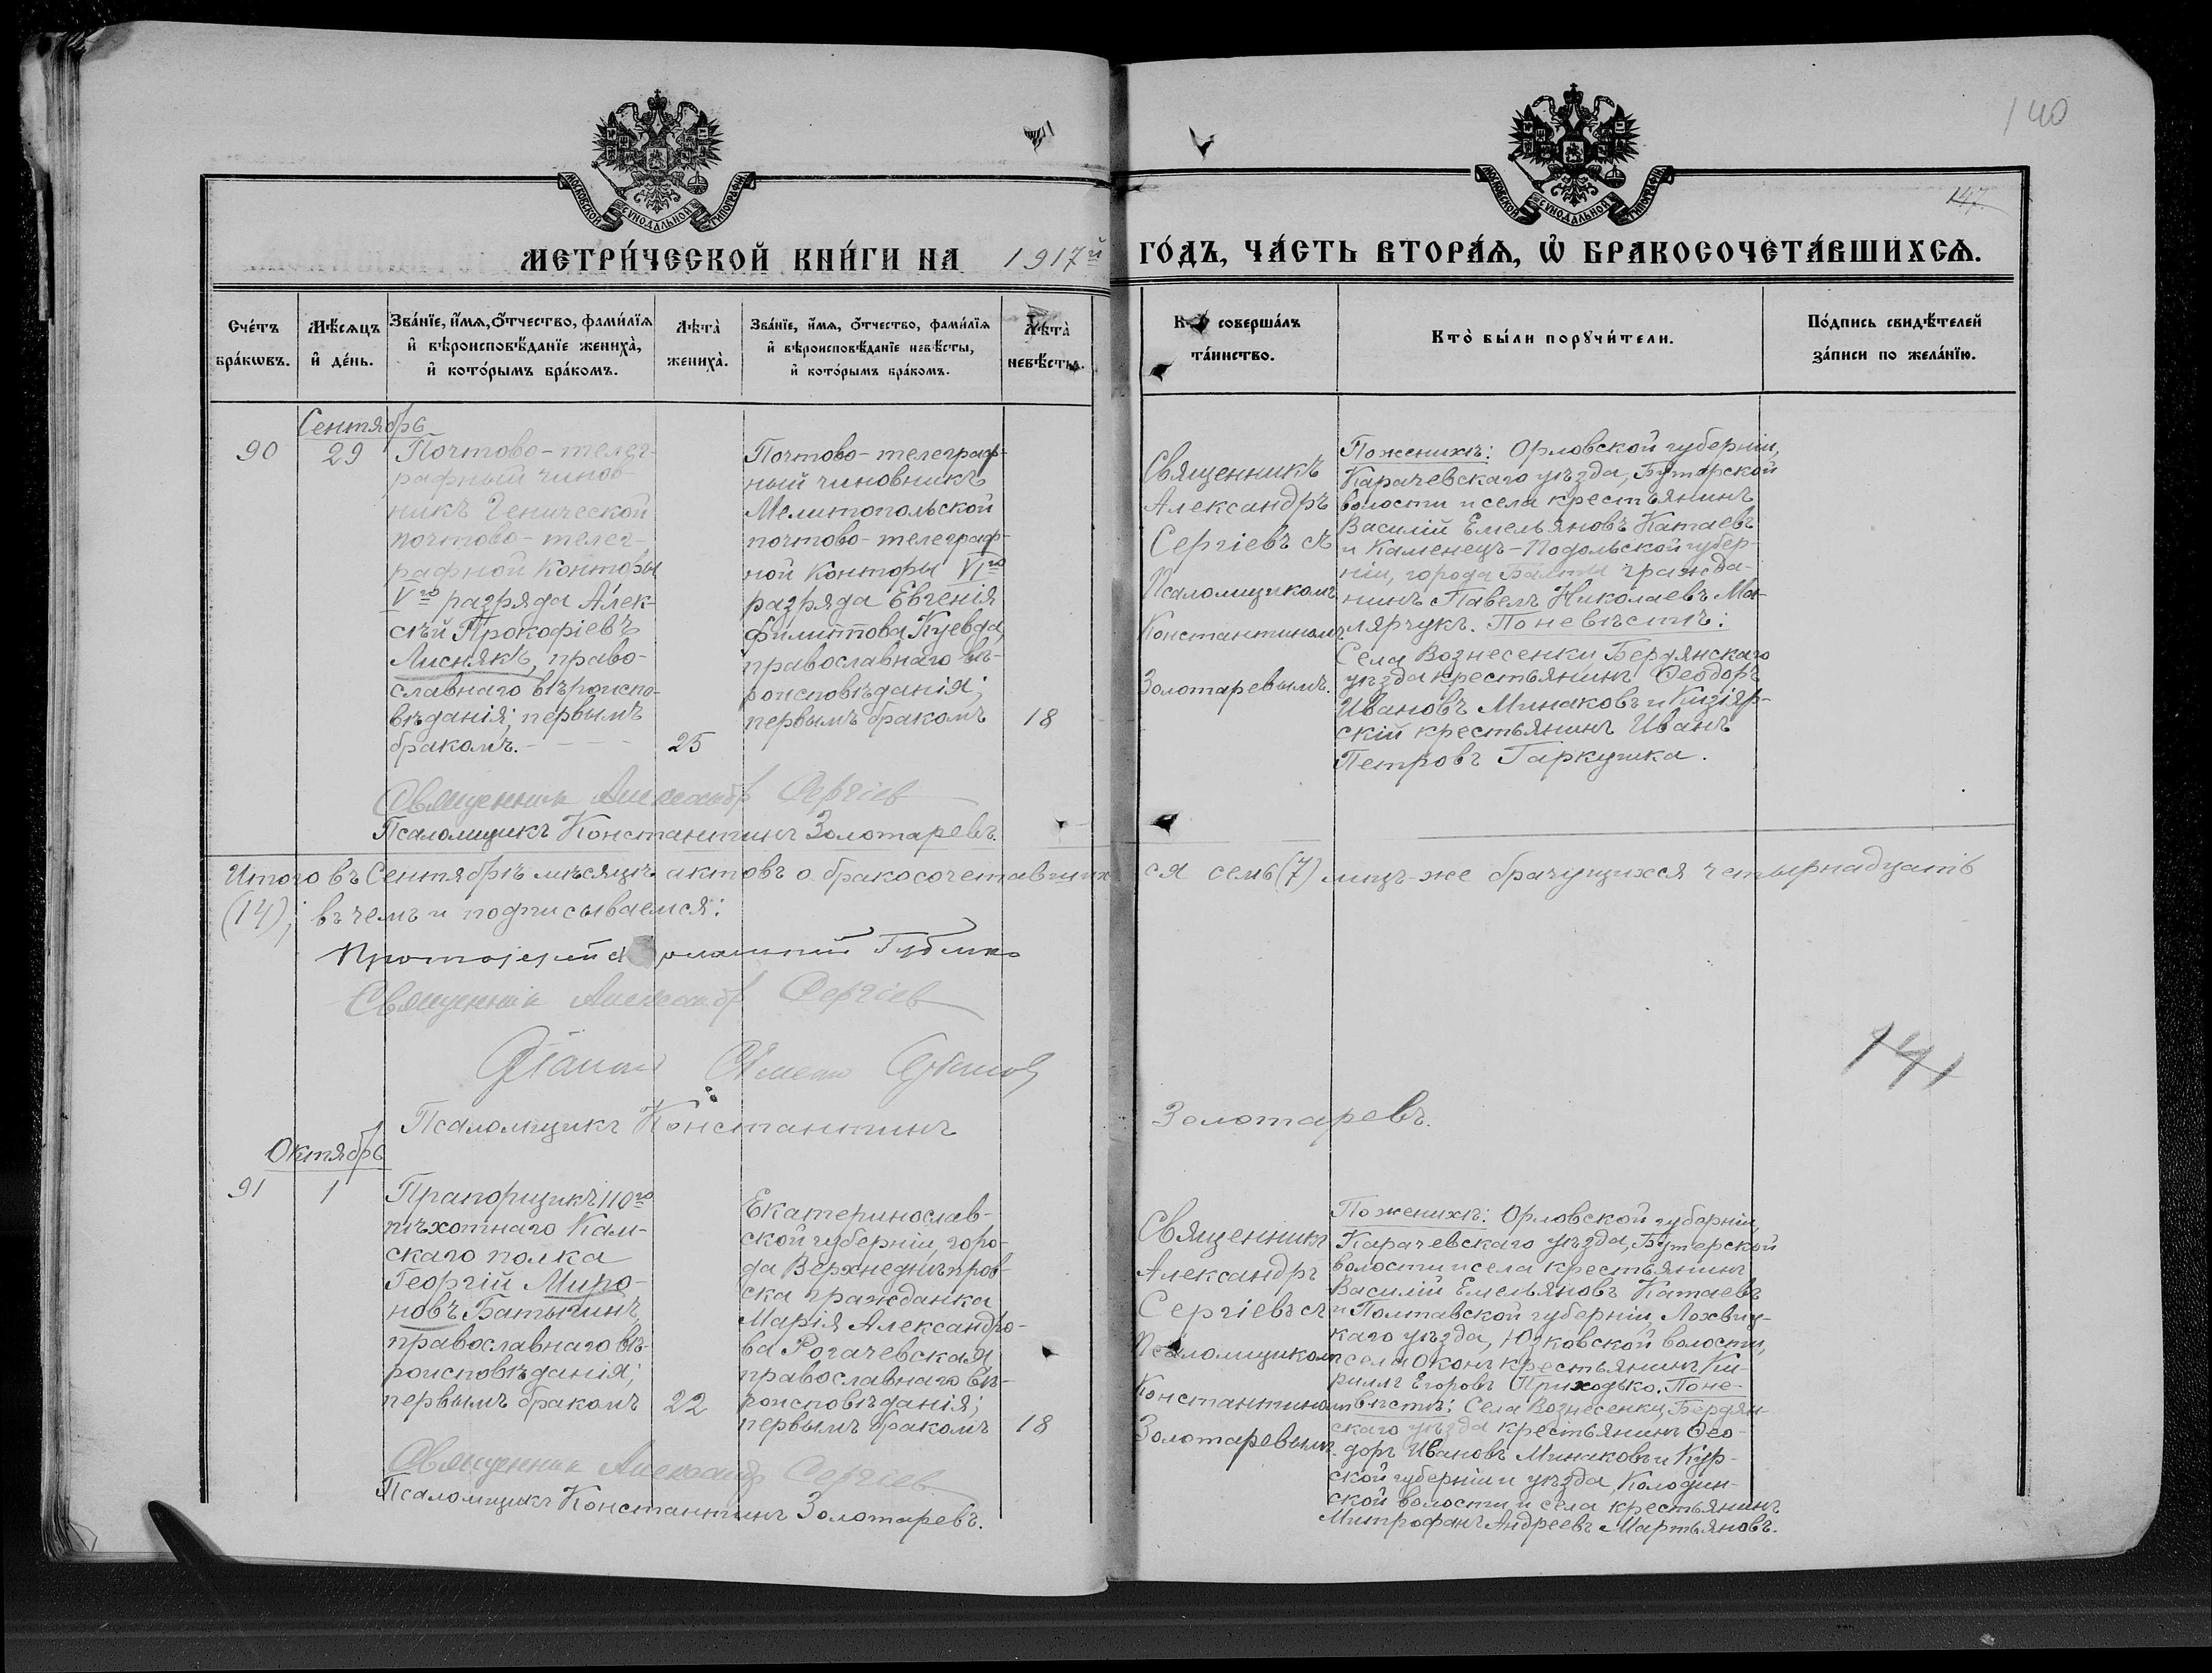 140
147.
МОСКОВСКОЙ СѴНОДАЛЬНОЙ ТИПОГРАФІИ
МОСКОВСКОЙ СѴНОДАЛЬНОЙ ТИПОГРАФІИ
МЕТРИ́ЧЕСКОЙ КНИ́ГИ НА 1917й
ГО́ДЪ, ЧА́СТЬ ВТОРА́Ѧ, Ѡ҆ БРАКОСОЧЕТА́ВШИХСѦ.
Сче́тъ
бра́кѡвъ.
Мѣ́сѧцъ
и҆ де́нь.
Зва́нїе, и҆́мѧ, ѻ҆́тчество, фами́лїѧ
и҆ вѣроисповѣ́данїе жениха̀,
и҆ кото́рымъ бра́комъ.
Лѣ́та̀
жениха̀.
Зва́нїе, и҆́мѧ, ѻ҆́тчество, фами́лїѧ
и҆ вѣроисповѣ́данїе невѣ́сты,
и҆ кото́рымъ бра́комъ.
Лѣ́та̀
невѣ́сты.
совершáлъ
та́инство.
Кто̀ бы́ли порꙋчи́тели.
По́дпись свидѣ́телей
за́писи по жела́нїю.
Сентябрь
90
29
Почтово-телег-
рафный чинов-
никъ Генической
почтово-телег-
рафной Конторы
Vго разряда Алек-
сѣй Прокофіевъ
Лиснякъ, право-
славнаго вѣроиспо-
вѣданія; первымъ
бракомъ.
25
Почтово-телеграф-
ный чиновникъ
Мелитопольской
почтово-телеграф-
ной Конторы VIго
разряда Евгенія
Филиппова Куевда,
православнаго вѣ-
роисповѣданія;
первымъ бракомъ
18
Священникъ
Александръ
Сергіевъ съ
Псаломщикомъ
Константиномъ
Золотаревымъ.
По женихѣ: Орловской губерніи,
Карачевскаго уѣзда, Бутерской
волости и села крестьянинъ
Василій Емельяновъ Катаевъ
и Каменецъ-Подольской губер-
ніи, города Балты гражда-
нинъ Павелъ Николаевъ Ма-
лярчукъ. По невѣстѣ:
Села Вознесенки Бердянскаго
уѣзда крестьянинъ Ѳеодоръ
Ивановъ Минаковъ и Кизіяр-
скій крестьянинъ Иванъ
Петровъ Гаркушка.
Священник Александр Сергіев
Псаломщикъ Константинъ Золотаревъ.
Итого въ Сентябрѣ мѣсяцѣ актовъ о бракосочетавших
ся семь (7) лицъ-же брачущихся четырнадцать
(14); въ чемъ и подписываемся:
Протоіерей
Священник Александр Сергіев
Діакон Симеон
141
Псаломщикъ Константинъ
Золотаревъ.
Октябрь
91
1
Прапорщикъ 110го
пѣхотнаго Кам-
скаго полка
Георгій Миро-
новъ Батыгинъ,
православнаго вѣ-
роисповѣданія;
первымъ бракомъ
22
Екатеринослав-
ской губерніи, горо-
да Верхнеднѣпров-
ска гражданка
Марія Александро-
ва Рогачевская
православнаго вѣ-
роисповѣданія;
первымъ бракомъ
18
Священникъ
Александръ
Сергіевъ съ
Псаломщикомъ
Константиномъ
Золотаревымъ
По женихѣ: Орловской губерніи,
Карачевскаго уѣзда, Бутерской
волости и села крестьянинъ
Василій Емельяновъ Катаевъ
и Полтавской губерніи, Лохвиц-
каго уѣзда, Юзковской волости,
села Оконъ крестьянинъ Ки-
риллъ Егоровъ Приходько. По не-
вѣстѣ: Села Вознесенки, Бердян-
скаго уѣзда крестьянинъ Ѳео-
доръ Ивановъ Минаковъ и Кур-
ской губерніи и уѣзда, Колодин-
ской волости и села крестьянинъ
Митрофанъ Андреевъ Мартьяновъ.
Священник Александр Сергіев.
Псаломщикъ Константинъ Золотаревъ.